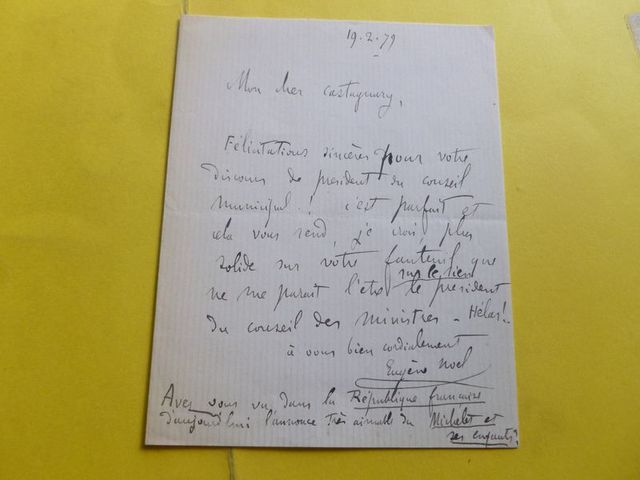 19.2.79
Mon cher Castagnary,
Félicitations sincères pour votre
discours de president du conseil
municipal! c'est parfait et
cela vous rend, je crois, plus
solide sur votre fauteuil que
ne me parait l'etre sur le sien le president
du conseil des ministres - Hélas!
à vous bien cordialement
Eugène Noel
Avez vous vu dans la République française
d'aujourd'hui l'annonce très aimable du Michelet et
ses enfants?